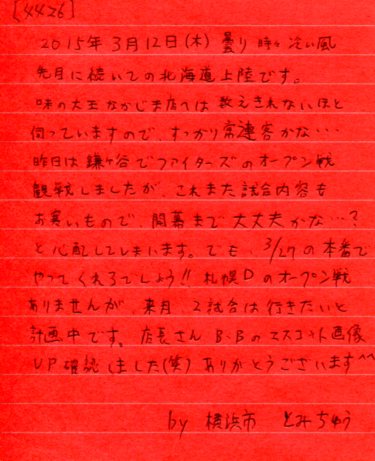 [4426]
2015年3月12日(木) 曇り 時々 冷い風
先月に続いての北海道上陸です。
味の大王なかじま店へは 数えきれないほど
伺っていますので、すっかり常連客かな…
昨日は鎌ヶ谷でファイターズのオープン戦
観戦しましたが、これまた試合内容も
お寒いもので、開幕まで大丈夫かな…?
と心配してしまいます。でも、3/27の本番で
やってくれるでしょう!! 札幌Dのオープン戦
ありませんが、来月、2試合は行きたいと
計画中です。店長さん B・Bのマスコット画像
UP確認しました(笑) ありがとうございます^^
by 横浜市 とみちゅう